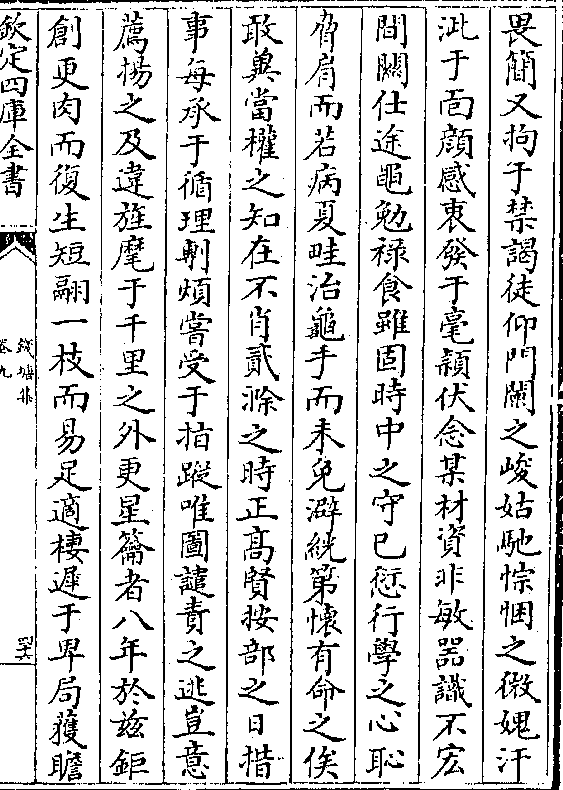 畏簡又拘于禁謁徒仰門闌之峻姑馳悰悃之微媿汗
泚于面顔感衷發于毫穎伏念某材資非敏器識不宏
間關仕途黽勉祿食雖固時中之守已愆行學之心恥
脅肩而若病夏畦治龜手而未免澼絖第懐有命之俟
敢冀當權之知在不肖貳滁之時正髙賢按部之日措
事每承于循理剸煩嘗受于指蹤唯圖譴責之逃豈意
薦揚之及違旌麾于千里之外更星籥者八年於兹鉅
創更肉而復生短翮一枝而易足適棲遲于卑局獲瞻
欽定四庫全書
錢塘集
卷九